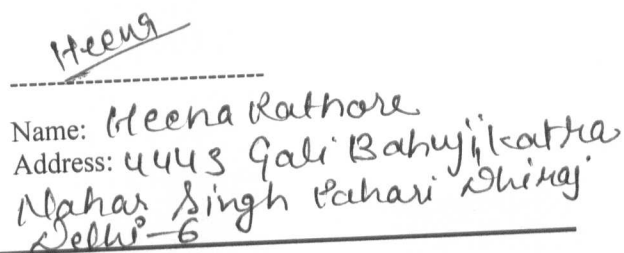 Heena
Name: Heena Rathore
Address: 4443 Gali Bahuji, katra
Nahar Singh Pahari Dhiraj
Delhi-6